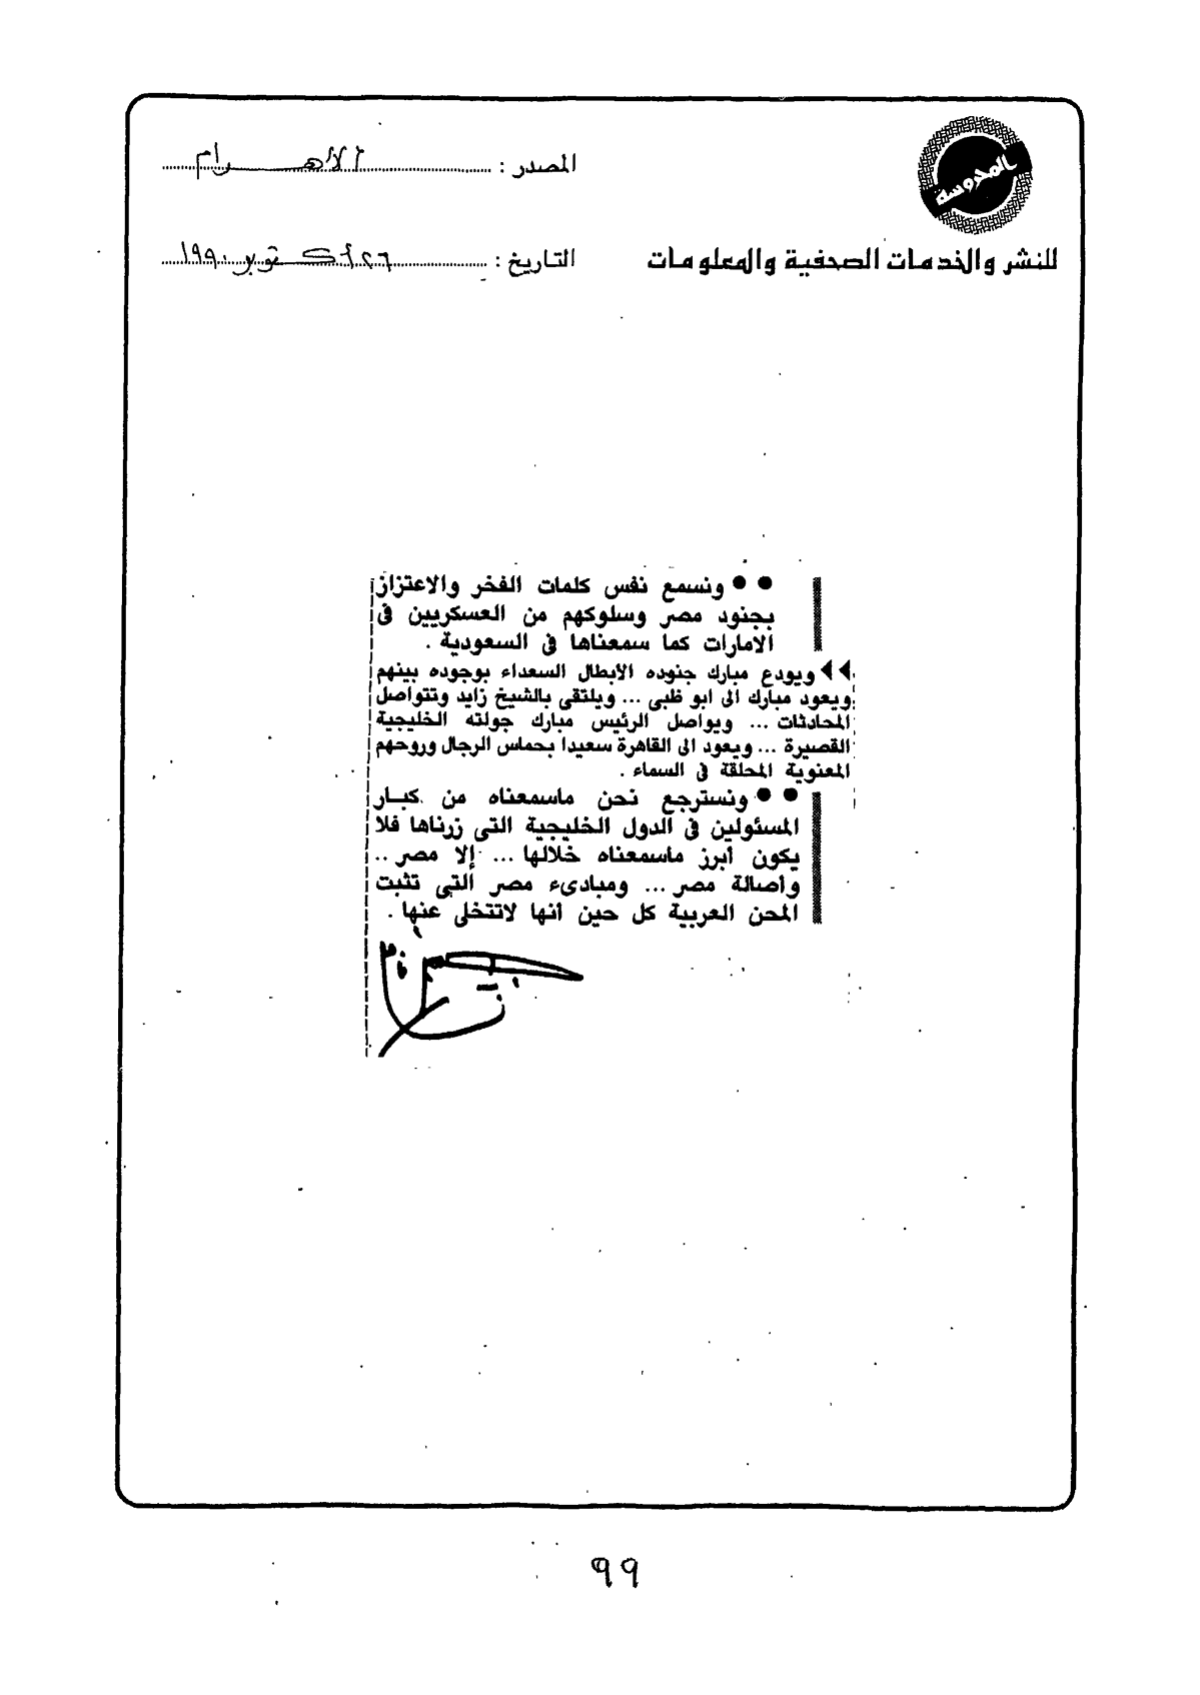 المحروسة
للنشر والخدمات الصحفية والمعلومات
المصدر : الاهرام
التاريخ : ٢٦ أكتوبر ١٩٩٠
●● ونسمع نفس كلمات الفخر والاعتزاز
بجنود مصر وسلوكهم من العسكريين فى
الامارات كما سمعناها فى السعودية .
◀◀ ويودع مبارك جنوده الأبطال السعداء بوجوده بينهم
ويعود مبارك الى ابو ظبى ... ويلتقى بالشيخ زايد وتتواصل
المحادثات ... ويواصل الرئيس مبارك جولته الخليجية
القصيرة ... ويعود الى القاهرة سعيدا بحماس الرجال وروحهم
المعنوية المحلقة فى السماء .
●● ونسترجع نحن ماسمعناه من كبار
المسئولين فى الدول الخليجية التى زرناها فلا
يكون أبرز ماسمعناه خلالها ... إلا مصر ..
وأصالة مصر ... ومبادىء مصر التى تثبت
المحن العربية كل حين أنها لاتتخلى عنها .
٩٩